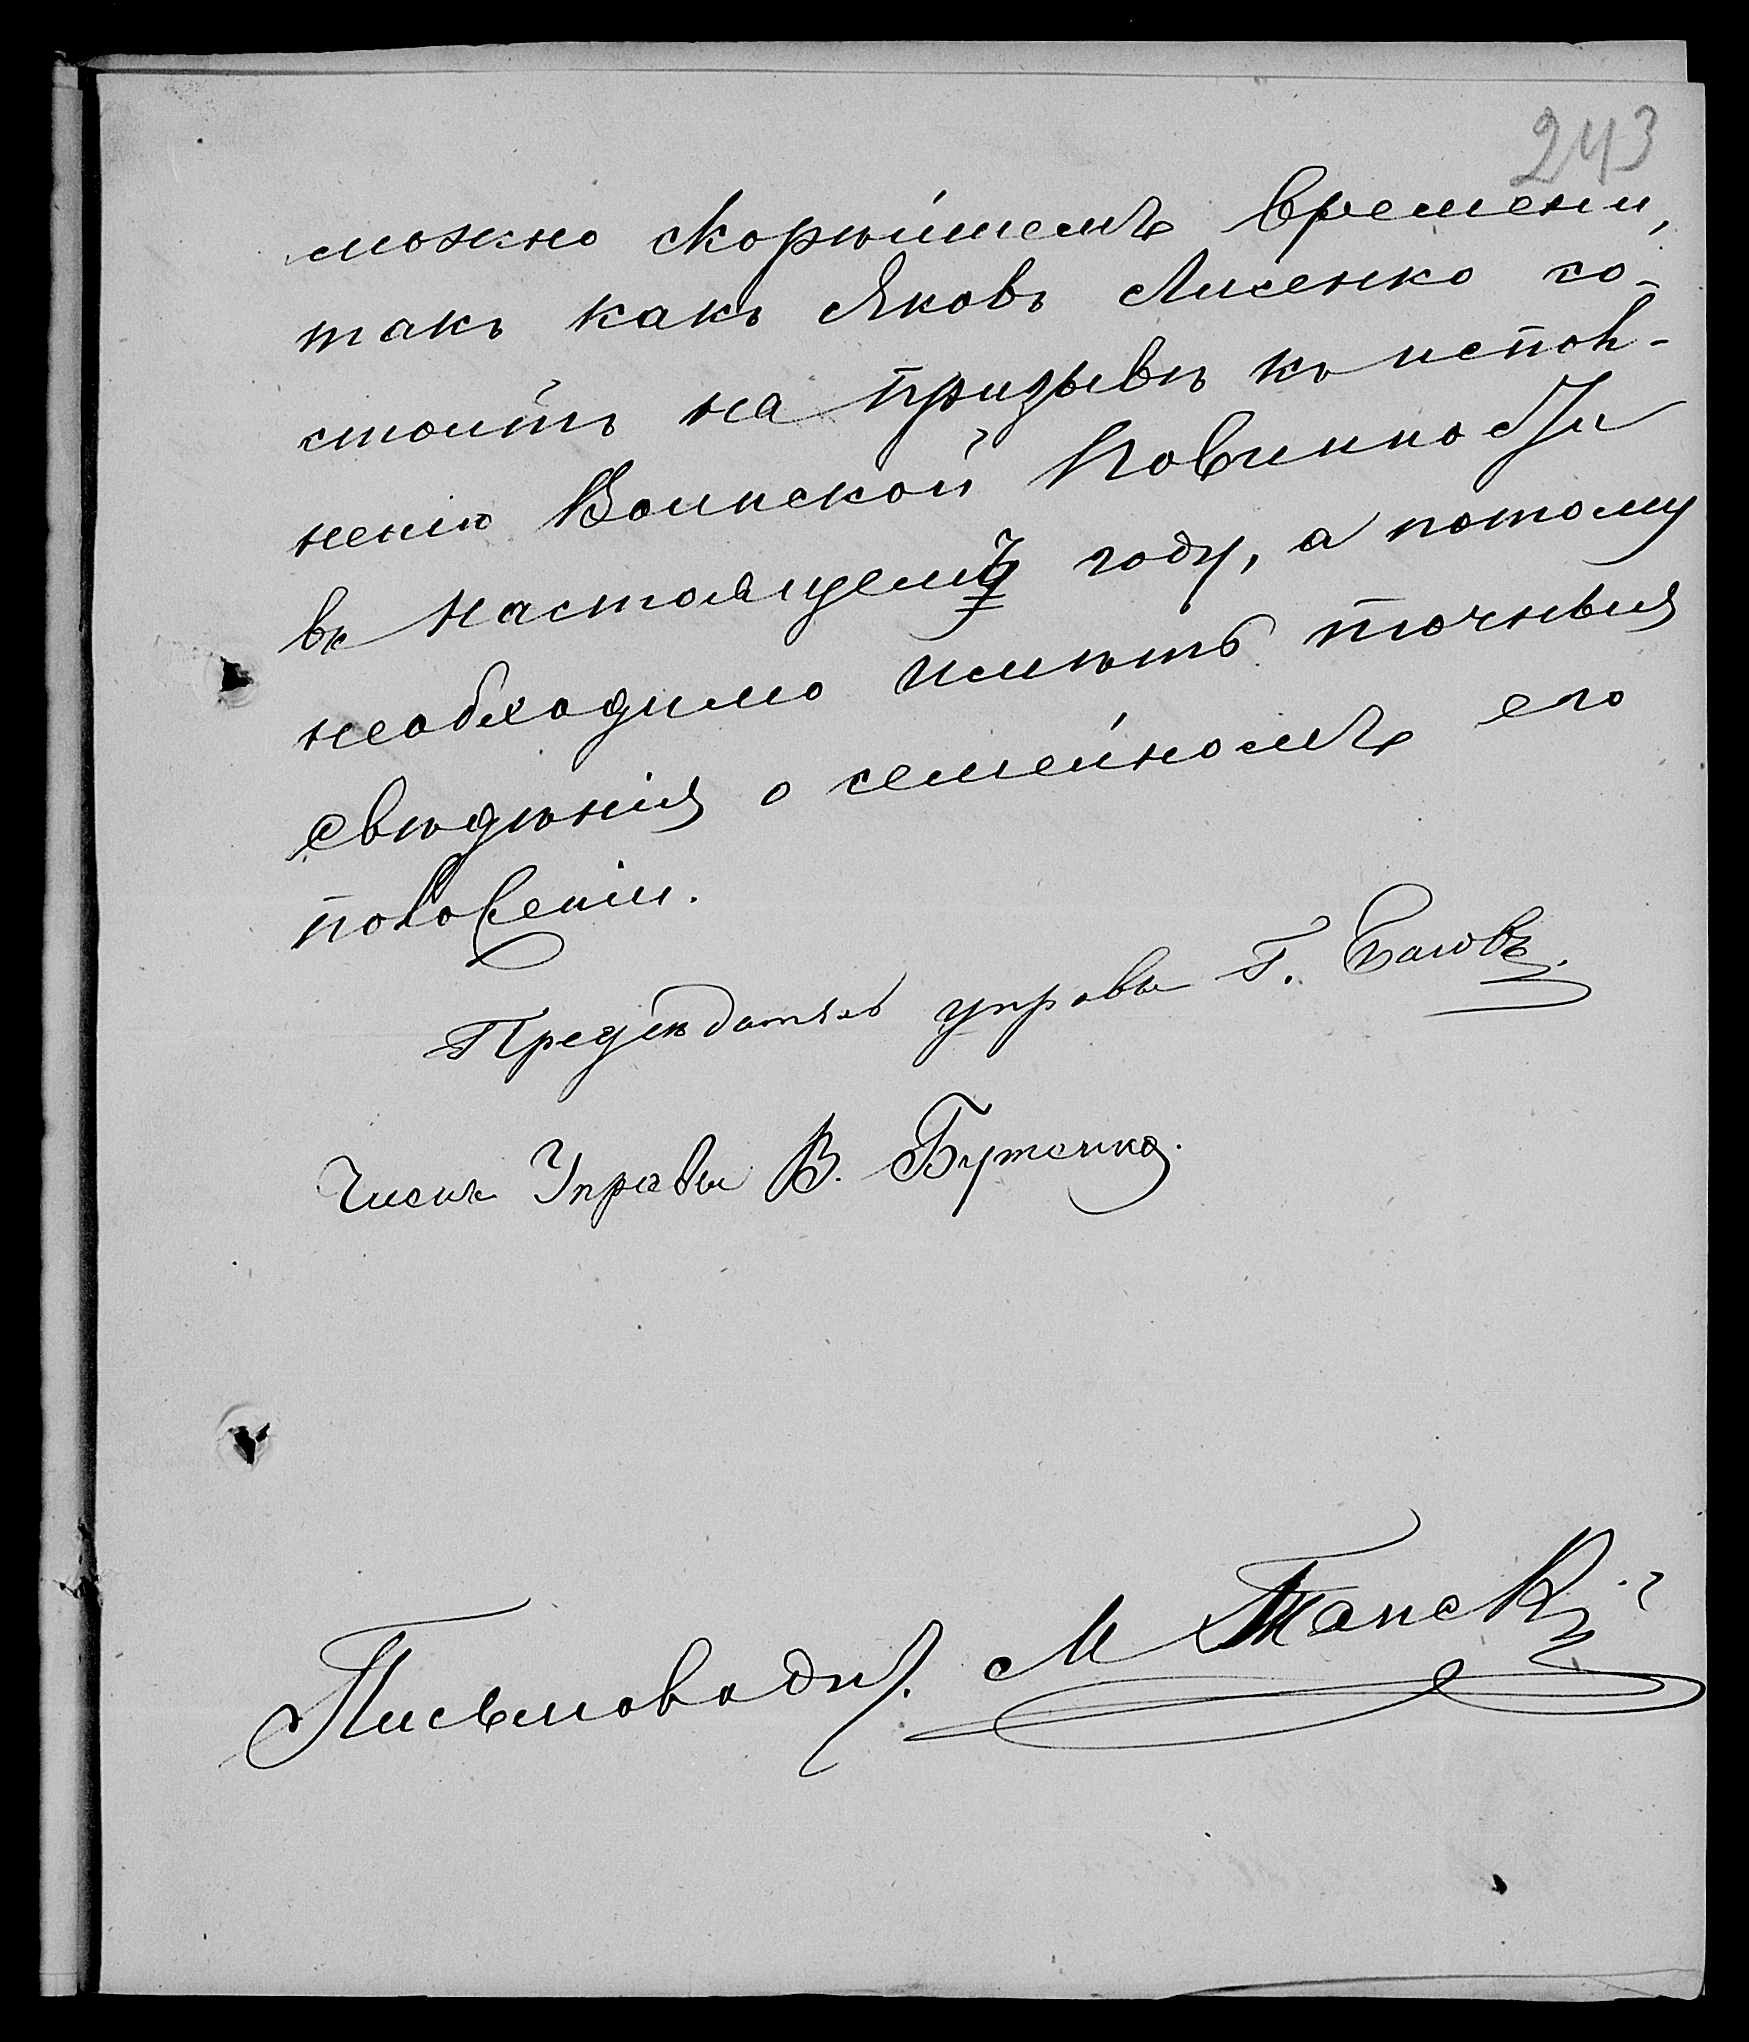 243
можно скорѣйшемъ времени,
такъ какъ Яковъ Лисенко со-
стоитъ на призывѣ къ испол-
ненію Воинской Повинности
въ настоящемъ году, а потому
необходимо имѣть точныя
свѣдѣнія о семейномъ его
положеніи.
Предсѣдатель управы Г.
Членъ Управы В. Бутенко.
Письмовод. М Танскій